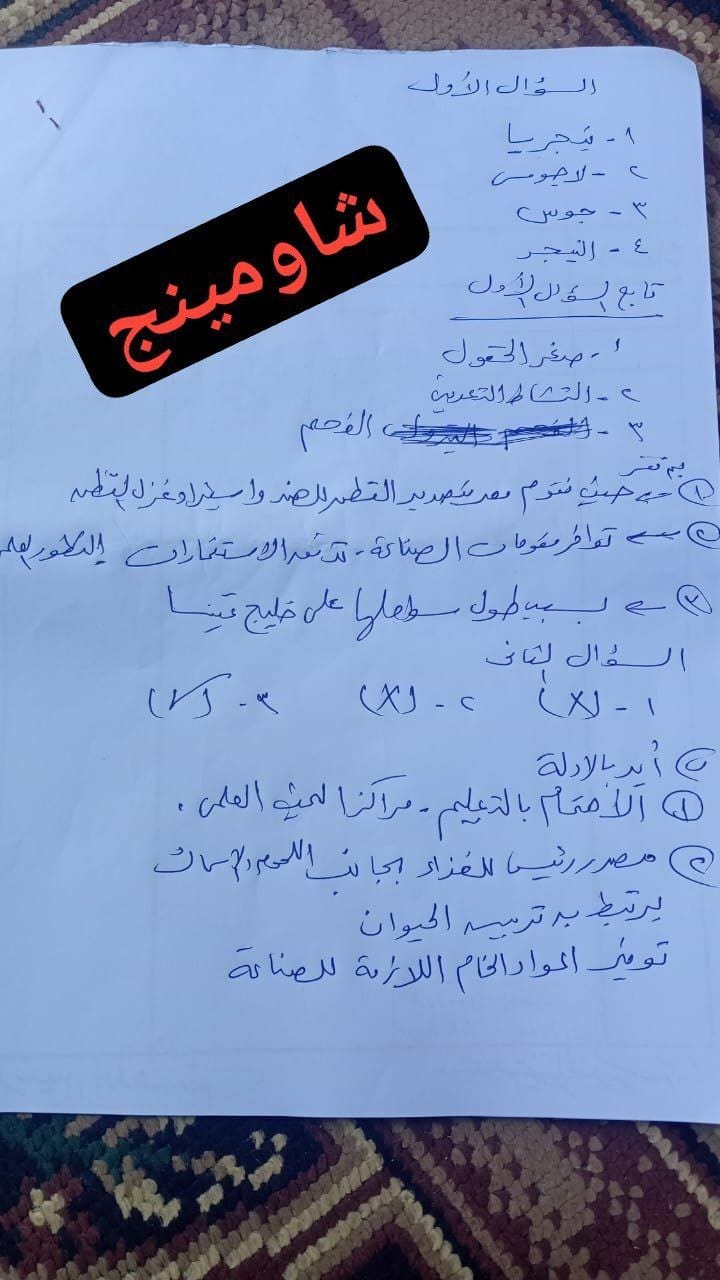 السؤال الأول
١- نيجريا
٢- لاجوس
٣- جوس
٤- النيجر
تابع السؤال الأول
١- صغر الحقول
٢- النشاط التعديني
٣- الفحم
بم تفسر
① ← حيث تقوم مصر بتصدير القطن للهند واستيراد غزل القطن
② ← توافر مقومات الصناعة - تدفق الاستثمارات - التطور العلمي
③ ← بسبب طول سواحلها على خليج غينيا
السؤال الثاني
١- (X) ٢- (X) ٣- (✓)
ب أيد بالادلة
① الأهتمام بالتعليم - مراكز البحث العلمى .
② مصدر رئيسى للغذاء بجانب اللحوم والاسماك
يرتبط به تربيه الحيوان
توفير المواد الخام اللازمة للصناعة
شاومينج